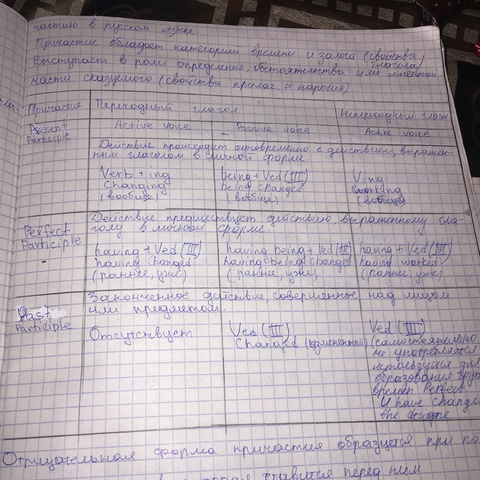 частию в русском языке
Причастие обладает категории времени и залога (свойства глагола)
Выступает в роли определения, обстоятельства или именной
части сказуемого (свойства прилаг. и наречия)
Причастие Переходный глагол Непереходный глагол
Present Participle Active voice Passive voice Active voice
Действие происходит одновременно с действием, выражен-
ным глаголом в личной форме
Verb + ing being + Ved (III) Ving
Changing being changed working
(вообще) (вообще) (вообще)
Perfect Participle Действие предшествует действию, выраженному гла-
голу в личной форме
having + Ved (III) having being + Ved (III) having + Ved (III)
having changed having being changed having worked
(ранее, уже) (ранее, уже) (ранее, уже)
Past Participle Законченное действие, совершенное над лицом
или предметом.
Отсутствует Ved (III) Ved (III)
Changed (измененный) (самостоятельно
не употребляется
используется для
образования груп
времен Perfect
I have change
the
Отрицательная форма причастия образуется при по
ставится перед ним